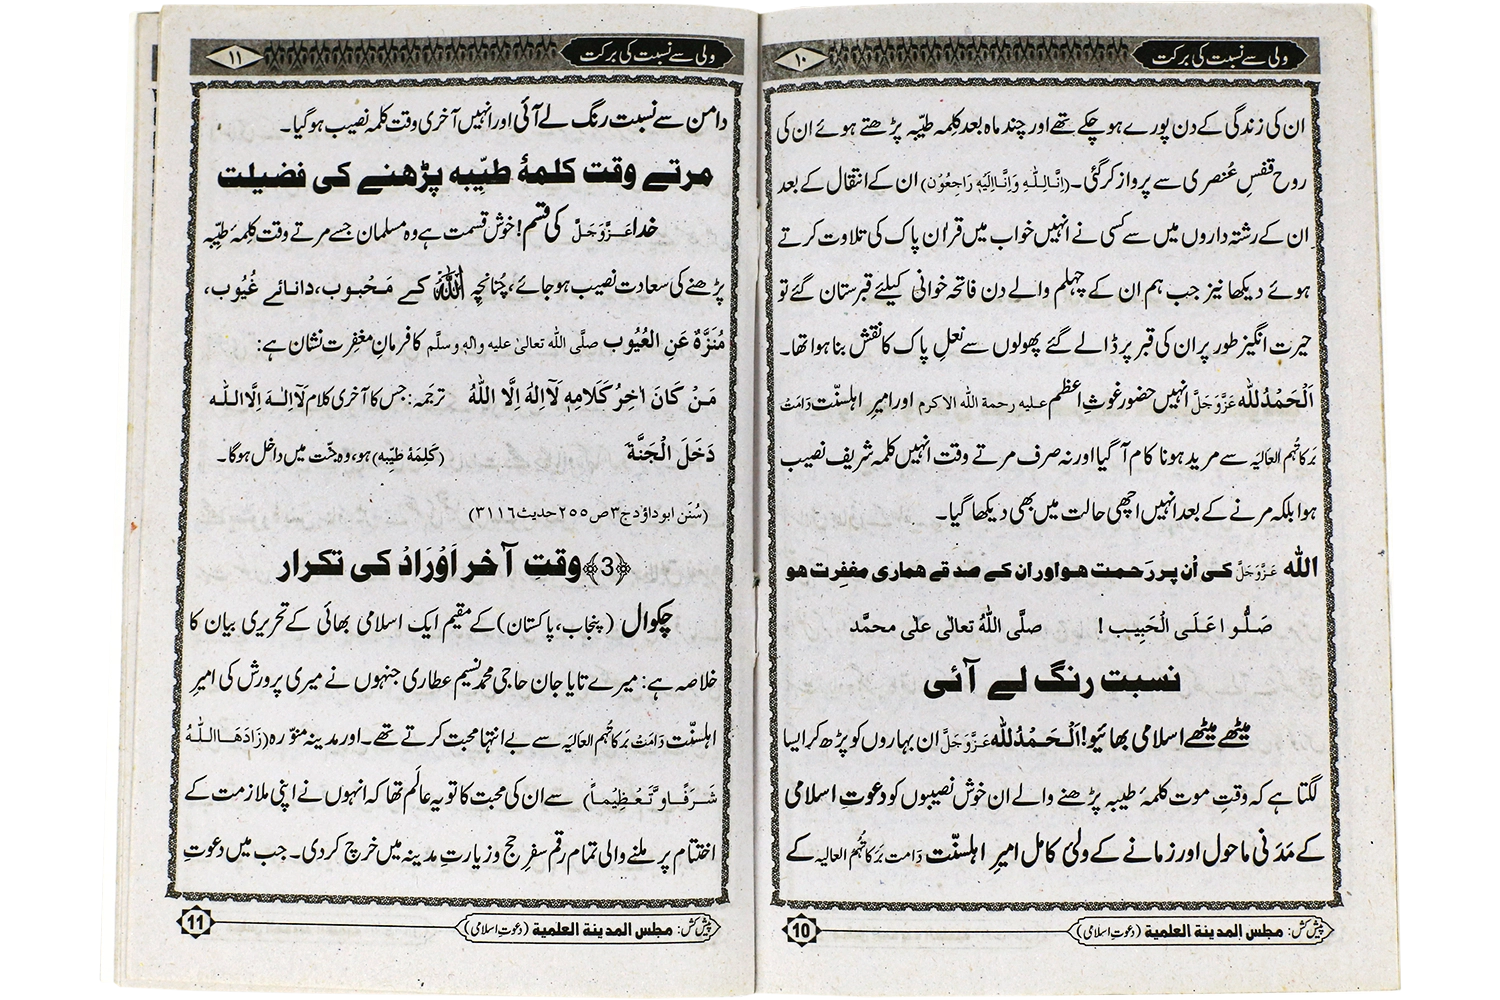 ولی سے نسبت کی برکت
۱۰
ان کی زندگی کے دن پورے ہو چکے تھے اور چند ماہ بعد کلِمہ طیّبہ پڑھتے ہوئے ان کی
روح قفسِ عُنصری سے پرواز کر گئی۔ (اِنَّا لِلّٰهِ وَاِنَّا اِلَیْهِ رَاجِعُوْن) ان کے انتقال کے بعد
ان کے رشتہ داروں میں سے کسی نے انہیں خواب میں قرآن پاک کی تلاوت کرتے
ہوئے دیکھا نیز جب ہم ان کے چہلم والے دن فاتحہ خوانی کیلئے قبرستان گئے تو
حیرت انگیز طور پر ان کی قبر پر ڈالے گئے پھولوں سے نعلِ پاک کا نقش بنا ہوا تھا۔
اَلْحَمْدُ لِلّٰه عَزَّوَجَلَّ انہیں حضور غوثِ اعظم علیه رحمة اللہ الاکرم اور امیرِ اہلسنّت دَامَتْ
بَرَکَاتُہُم العالیہ سے مرید ہونا کام آ گیا اور نہ صرف مرتے وقت انہیں کلمہ شریف نصیب
ہوا بلکہ مرنے کے بعد انہیں اچھی حالت میں بھی دیکھا گیا۔
اللہ عَزَّوَجَلَّ کی اُن پر رَحمت ہو اور ان کے صدقے ہماری مغفِرت ہو
صَلُّوا عَلَی الْحَبِیب ! صلَّی اللّٰهُ تعالٰی علٰی محمَّد
نسبت رنگ لے آئی
میٹھے میٹھے اسلامی بھائیو! اَلْحَمْدُ لِلّٰه عَزَّوَجَلَّ ان بہاروں کو پڑھ کر ایسا
لگتا ہے کہ وقتِ موت کلمۂ طیبہ پڑھنے والے ان خوش نصیبوں کو دعوتِ اسلامی
کے مَدَنی ماحول اور زمانے کے ولیٔ کامل امیرِ اہلسنّت دَامت بَرَکَاتُہُم العالیہ کے
پیش کش: مجلس المدینة العلمیة (دعوتِ اسلامی)
10
ولی سے نسبت کی برکت
۱۱
دامن سے نسبت رنگ لے آئی اور انہیں آخری وقت کلمہ نصیب ہو گیا۔
مرتے وقت کلمۂ طیّبہ پڑھنے کی فضیلت
خدا عَزَّوَجَلَّ کی قسم! خوش قسمت ہے وہ مسلمان جسے مرتے وقت کلِمۂ طیّبہ
پڑھنے کی سعادت نصیب ہو جائے، چُنانچِہ اللہ کے مَحْبوب، دانائے غُیُوب،
مُنَزَّهٌ عَنِ الْعُیُوب صلَّی اللہ تعالیٰ علیه واٰلہٖ وسلَّم کا فرمانِ مغفِرت نشان ہے:
مَنْ کَانَ اٰخِرُ کَلَامِهٖ لَآ اِلٰهَ اِلَّا اللّٰهُ ترجَمہ: جس کا آخری کلام لَآ اِلٰـهَ اِلَّا اللّٰه
دَخَلَ الْجَنَّةَ (کَلِمَۂ طیِّبہ) ہو، وہ جنّت میں داخل ہوگا۔
(سُنَن ابو داؤد ج۳ ص ۲۵۵ حدیث ۳۱۱۶)
﴿3﴾ وقتِ آخر اَوْرَادْ کی تکرار
چکوال (پنجاب، پاکستان) کے مقیم ایک اسلامی بھائی کے تحریری بیان کا
خلاصہ ہے: میرے تایا جان حاجی محمد نسیم عطاری جنہوں نے میری پرورش کی امیرِ
اہلسنّت دَامَتْ بَرَکَاتُہُم العالیہ سے بے انتہا محبت کرتے تھے۔ اور مدینہ منوّرہ (زَادَهَا اللّٰهُ
شَرَفًا وَّتَعْظِیْماً) سے ان کی محبت کا تو یہ عالَم تھا کہ انہوں نے اپنی ملازمت کے
اختتام پر ملنے والی تمام رقم سفرِ حج و زیارتِ مدینہ میں خرچ کر دی۔ جب میں دعوتِ
پیش کش: مجلس المدینة العلمیة (دعوتِ اسلامی)
11